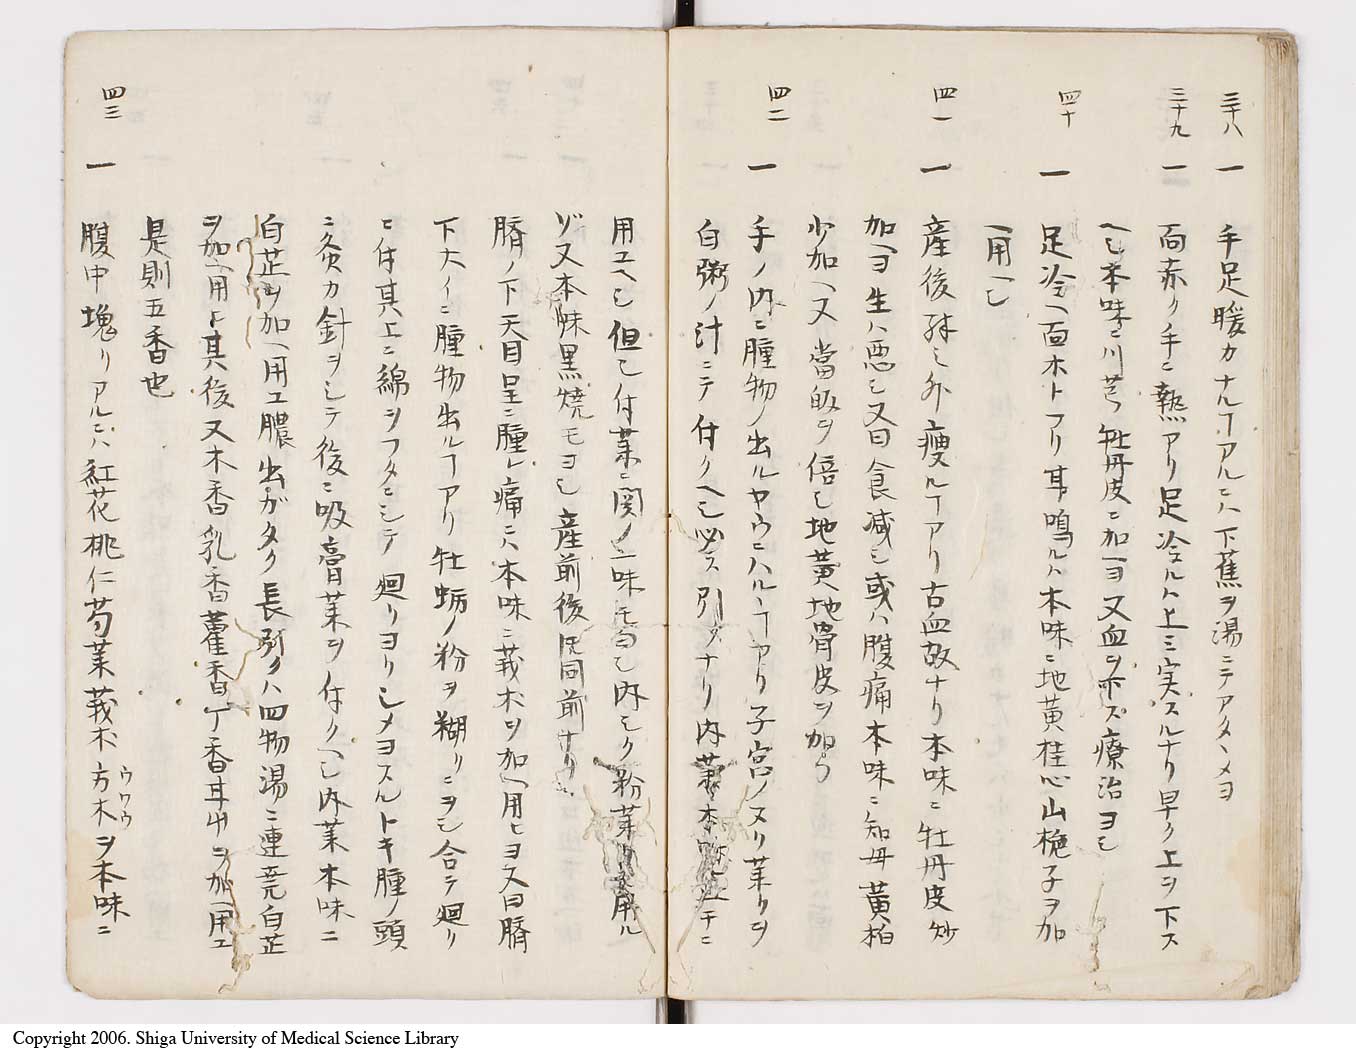 三十八 一 手足暖カナルヿアルニハ下蕉ヲ湯ニテアタヽメヨ
三十九 一 面赤ク手ニ熱アリ足冷ルハ上ミ実スルナリ早ク上ヲ下ス
ヘシ本味ニ川芎牡丹皮ニ加ヨ又血ヲ下ス療治ヨシ
四十 一 足冷ヘ面ホトフリ耳鳴ルハ本味ニ地黄桂心山梔子ヲ加
用ヘシ
四一 一 産後殊ミ外瘦ルヿアリ古血故ナリ本味ニ牡丹皮炒
加ヘヨ生ハ悪シ又曰食減シ或ハ腹痛本味ニ知母黄柏
少加ヘ又當皈ヲ倍シ地黄地骨皮ヲ加ウ
四二 一 手ノ内ニ腫物ノ出ルヤウニハルヽヿアリ子宮ノヌリ薬リヲ
白粥ノ汁ニテ付クヘシ必ス引クナリ内薬本味
用ユヘシ但シ付薬ニ関ノ一味モ
又本味黒焼モヨシ産前後同前ナリ
臍ノ下天目呈ニ腫レ痛ニハ本味ニ莪朮ヲ加ヘ用ヒヨ又曰臍
下大イニ腫物出ルヿアリ牡蛎ノ粉ヲ糊リニヲシ合テ廻リ
ニ付其上ニ綿ヲフタニシテ廻リヨリシメヨスルトキ腫ノ頭
ニ灸カ針ヲシテ後ニ吸膏薬ヲ付クヘシ内薬本味ニ
白芷ヲ加ヘ用ユ膿出ガタク長引クハ四物湯ニ連翹白芷
ヲ加ヘ用ヒ其後又木香乳香藿香丁香甘艸ヲ加ヘ用ユ
是則五香也
四三 一 腹中塊リアルニハ紅花桃仁芍薬莪朮方木ヲ本味ニ
ウウウウ
Copyright 2006. Shiga University of Medical Science Library